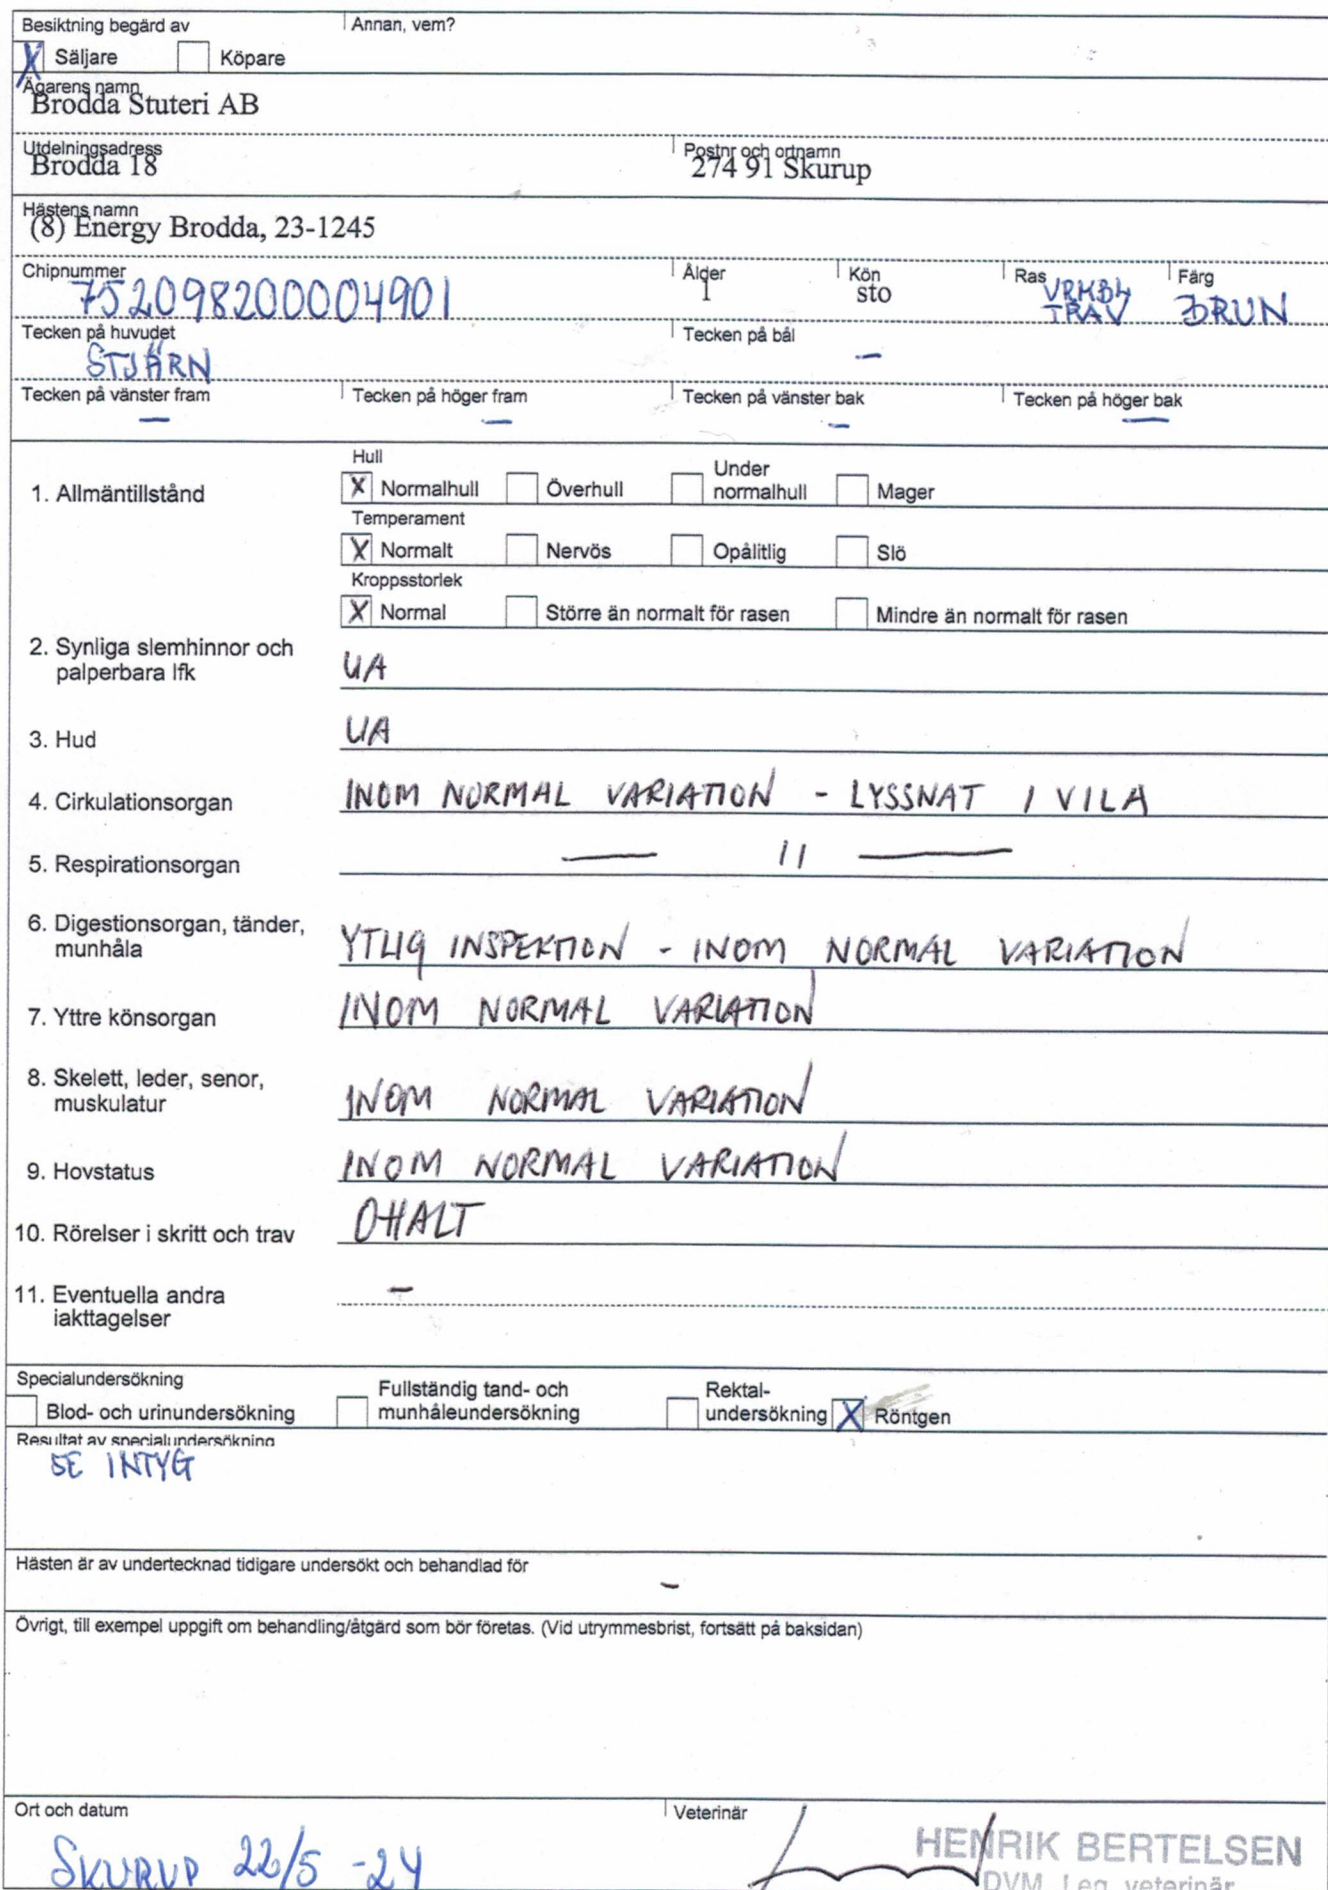 Besiktning begärd av Annan, vem?
X Säljare Köpare
Ägarens namn
Brodda Stuteri AB
Utdelningsadress Postnr och ortnamn
Brodda 18 274 91 Skurup
Hästens namn
(8) Energy Brodda, 23-1245
Chipnummer Ålder Kön Ras Färg
752098200004901 1 sto VRMBL TRAV BRUN
Tecken på huvudet Tecken på bål
STJÄRN –
Tecken på vänster fram Tecken på höger fram Tecken på vänster bak Tecken på höger bak
– – – –
Hull
1. Allmäntillstånd X Normalhull Överhull Under normalhull Mager
Temperament
X Normalt Nervös Opålitlig Slö
Kroppsstorlek
X Normal Större än normalt för rasen Mindre än normalt för rasen
2. Synliga slemhinnor och
palperbara lfk UA
3. Hud UA
4. Cirkulationsorgan INOM NORMAL VARIATION - LYSSNAT I VILA
5. Respirationsorgan — 11 —
6. Digestionsorgan, tänder,
munhåla YTLIG INSPEKTION - INOM NORMAL VARIATION
7. Yttre könsorgan INOM NORMAL VARIATION
8. Skelett, leder, senor,
muskulatur INOM NORMAL VARIATION
9. Hovstatus INOM NORMAL VARIATION
10. Rörelser i skritt och trav OHALT
11. Eventuella andra –
iakttagelser
Specialundersökning
Blod- och urinundersökning Fullständig tand- och munhåleundersökning Rektal-undersökning X Röntgen
Resultat av specialundersökning
SE INTYG
Hästen är av undertecknad tidigare undersökt och behandlad för
–
Övrigt, till exempel uppgift om behandling/åtgärd som bör företas. (Vid utrymmesbrist, fortsätt på baksidan)
Ort och datum Veterinär
SKURUP 22/5 -24 HENRIK BERTELSEN
DVM, Leg. veterinär